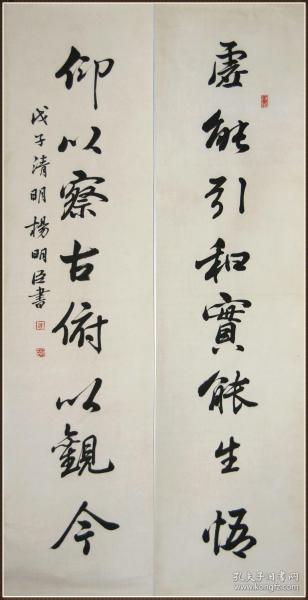 虛能引和實能生悟
仰以察古俯以觀今
戊子清明楊明臣書
孔夫子旧书网
www.kongfz.com